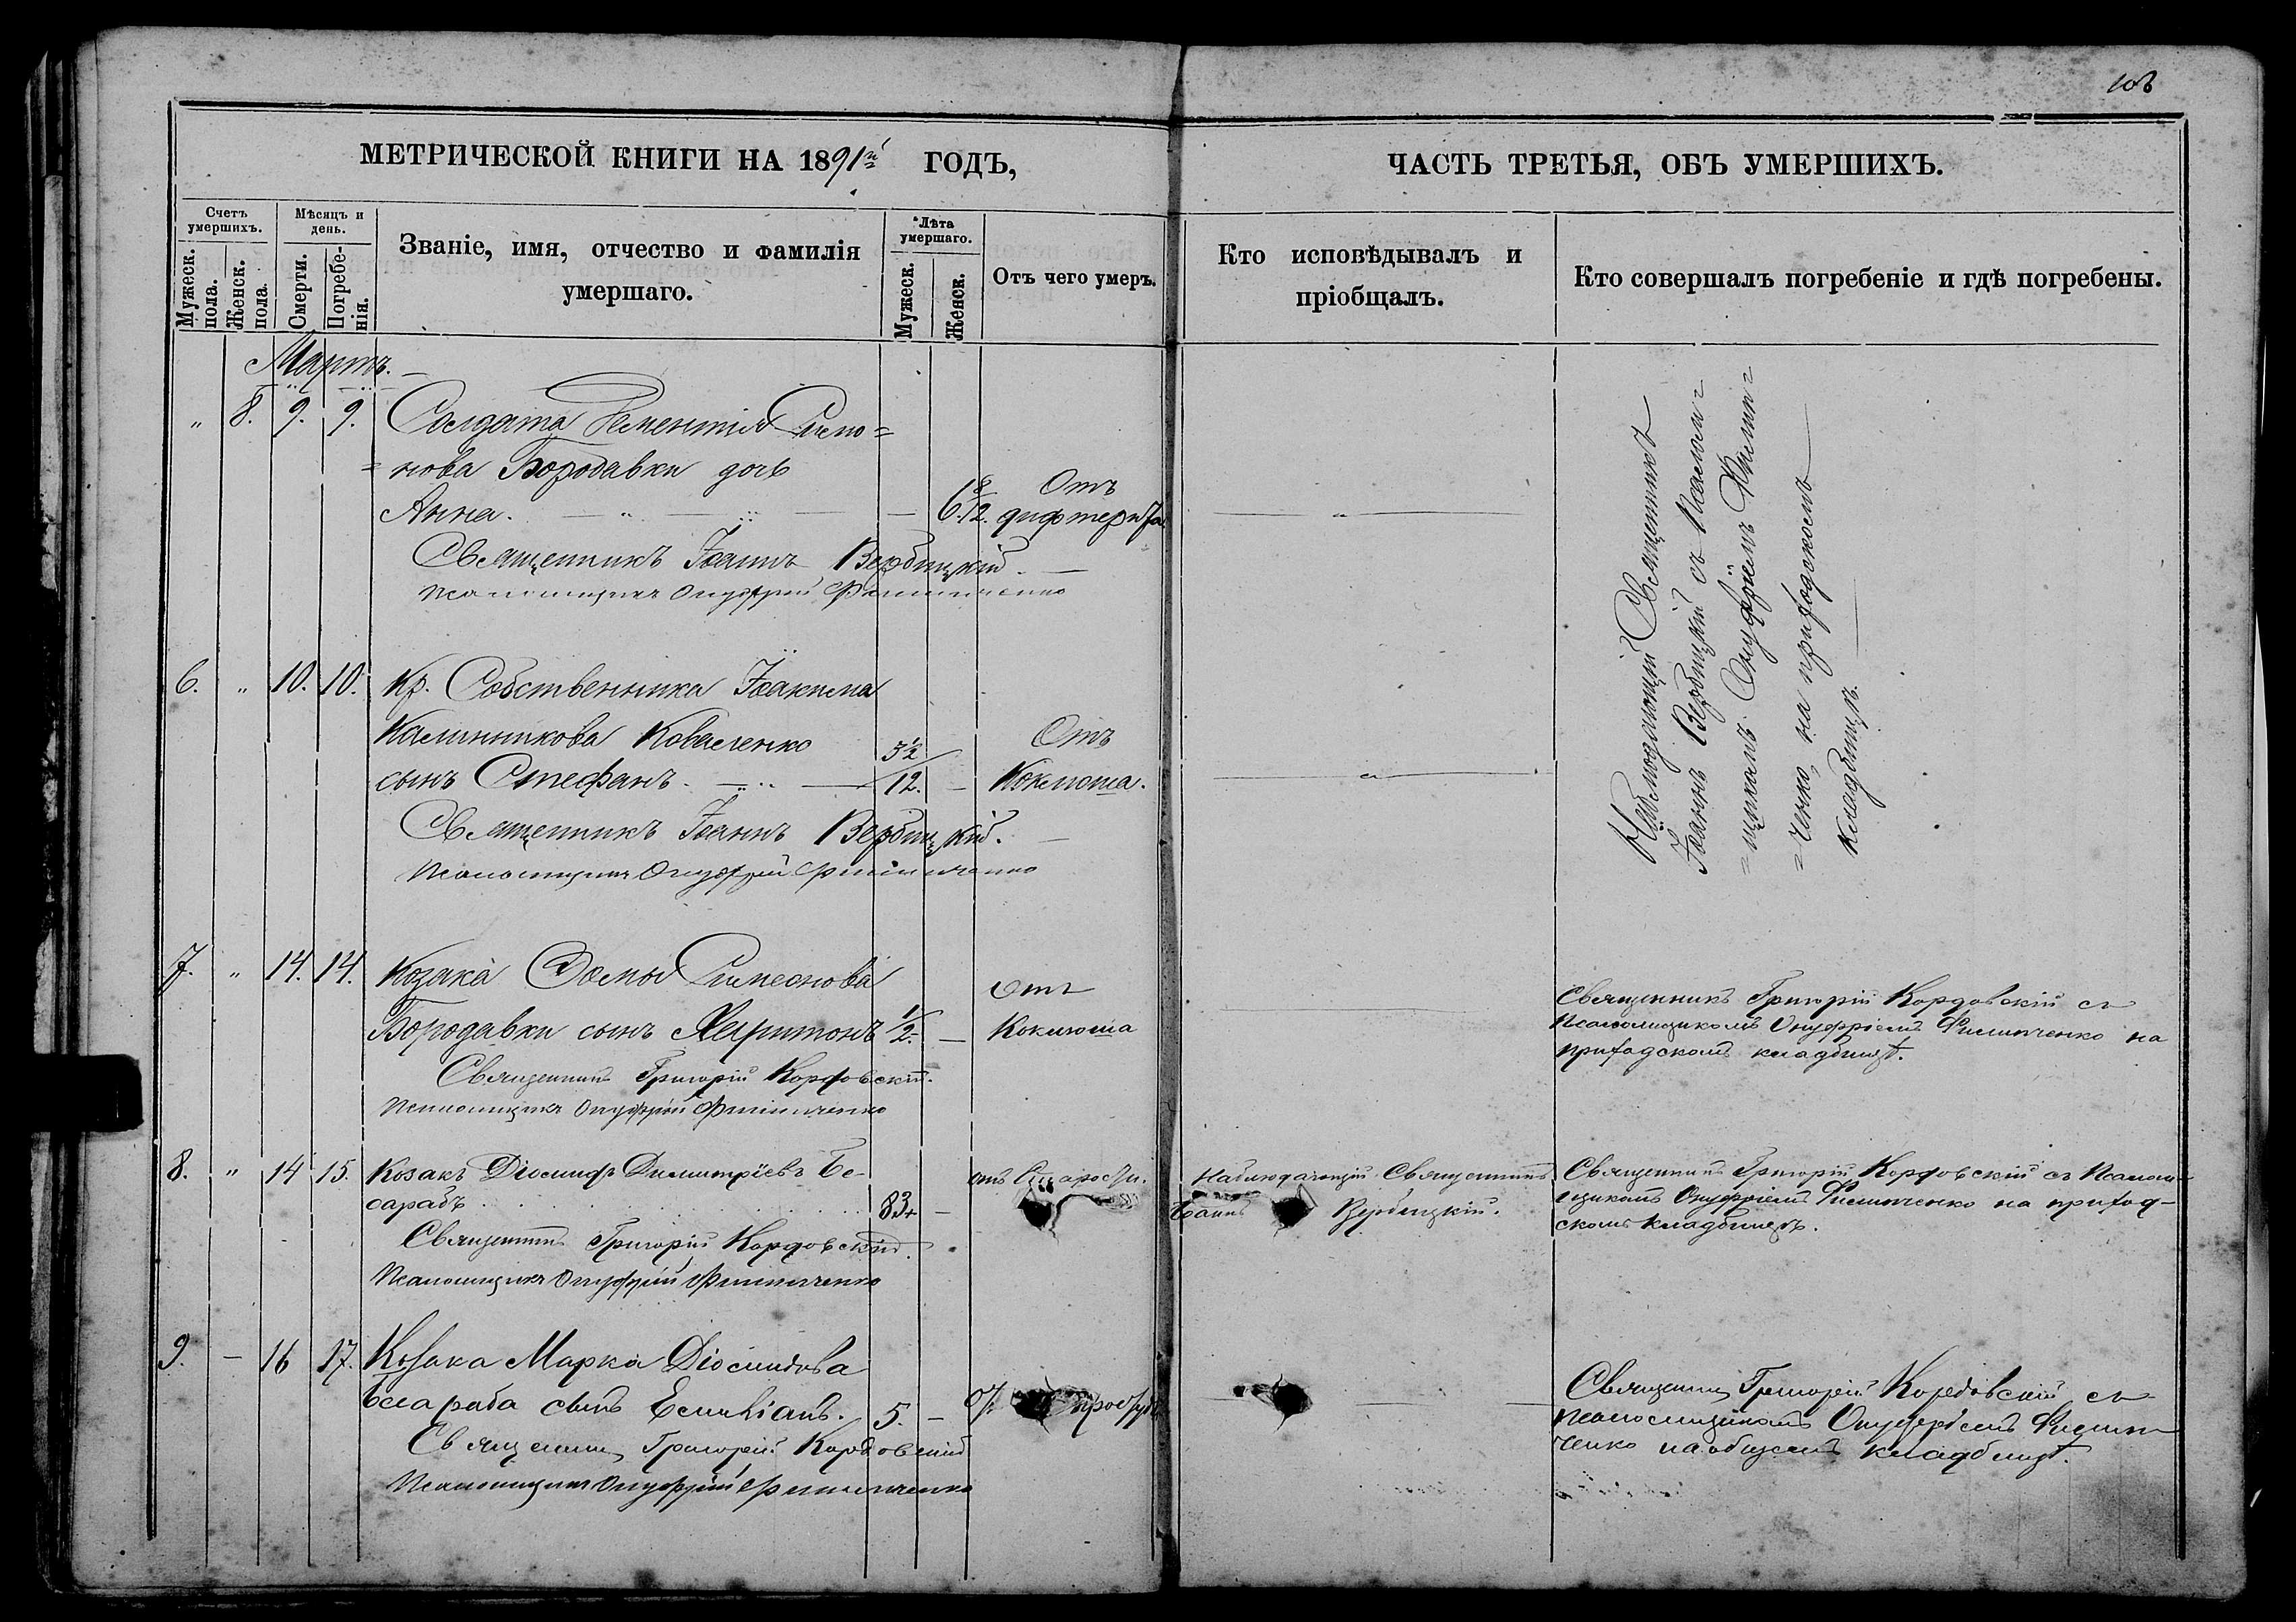 108
МЕТРИЧЕСКОЙ КНИГИ НА 1891й ГОДЪ,
ЧАСТЬ ТРЕТЬЯ, ОБЪ УМЕРШИХЪ.
Счетъ умершихъ.
Мужеск. пола.
Женск. пола.
Мѣсяцъ и день.
Смерти.
Погребенія.
Званіе, имя, отчество и фамилія умершаго.
Лѣта умершаго.
Мужеск.
Женск.
Отъ чего умеръ.
Кто исповѣдывалъ и пріобщалъ.
Кто совершалъ погребеніе и гдѣ погребены.
Мартъ.
" 8. 9. 9. Солдата
нова Бородавки дочь
Анна. — 6 8/12. Отъ дифтерита
Священникъ Іоаннъ Вербицкій
Псаломщикъ Онуфрій Филипченко
Наблюдающій Священникъ
Іоаннъ Вербицкій съ Псалом=
=щикомъ Онуфріемъ Филип=
=ченко, на приходскомъ
кладбищѣ.
6. " 10. 10. Кр. Собственника Іоакима
Калинникова Коваленко
сынъ Стефанъ. — 3½/12. — Отъ Коклюша.
Священникъ Іоаннъ Вербицкій.
Псаломщикъ Онуфрій Филипченко
7. " 14. 14. Козака Ѳомы Симеонова
Бородавки сынъ Харитонъ 1/2. — Отъ Коклюша
Священникъ Григорій Кордовскій.
Псаломщикъ Онуфрій Филипченко
Священникъ Григорій Кордовскій съ
Псаломщикомъ Онуфріемъ Филипченко на
приходскомъ кладбищѣ.
8. " 14 15. Козакъ Діомидъ Димитріевъ Бе-
сарабъ 83. — отъ Старости.
Священникъ Григорій Кордовскій.
Псаломщикъ Онуфрій Филипченко
Наблюдающій Священникъ
Іоаннъ Вербицкій.
Священникъ Григорій Кордовскій съ Псалом-
щикомъ Онуфріемъ Филипченко на приход-
скомъ кладбищѣ.
9. — 16 17. Козака Марка Діомидова
Бесараба сынъ Емиліанъ. 5. —
Священникъ Григорій Кордовскій
Псаломщикъ Онуфрій Филипченко
Священникъ Григорій Кордовскій съ
Псаломщикомъ Онуфріемъ Филип
ченко на общемъ кладбищѣ.